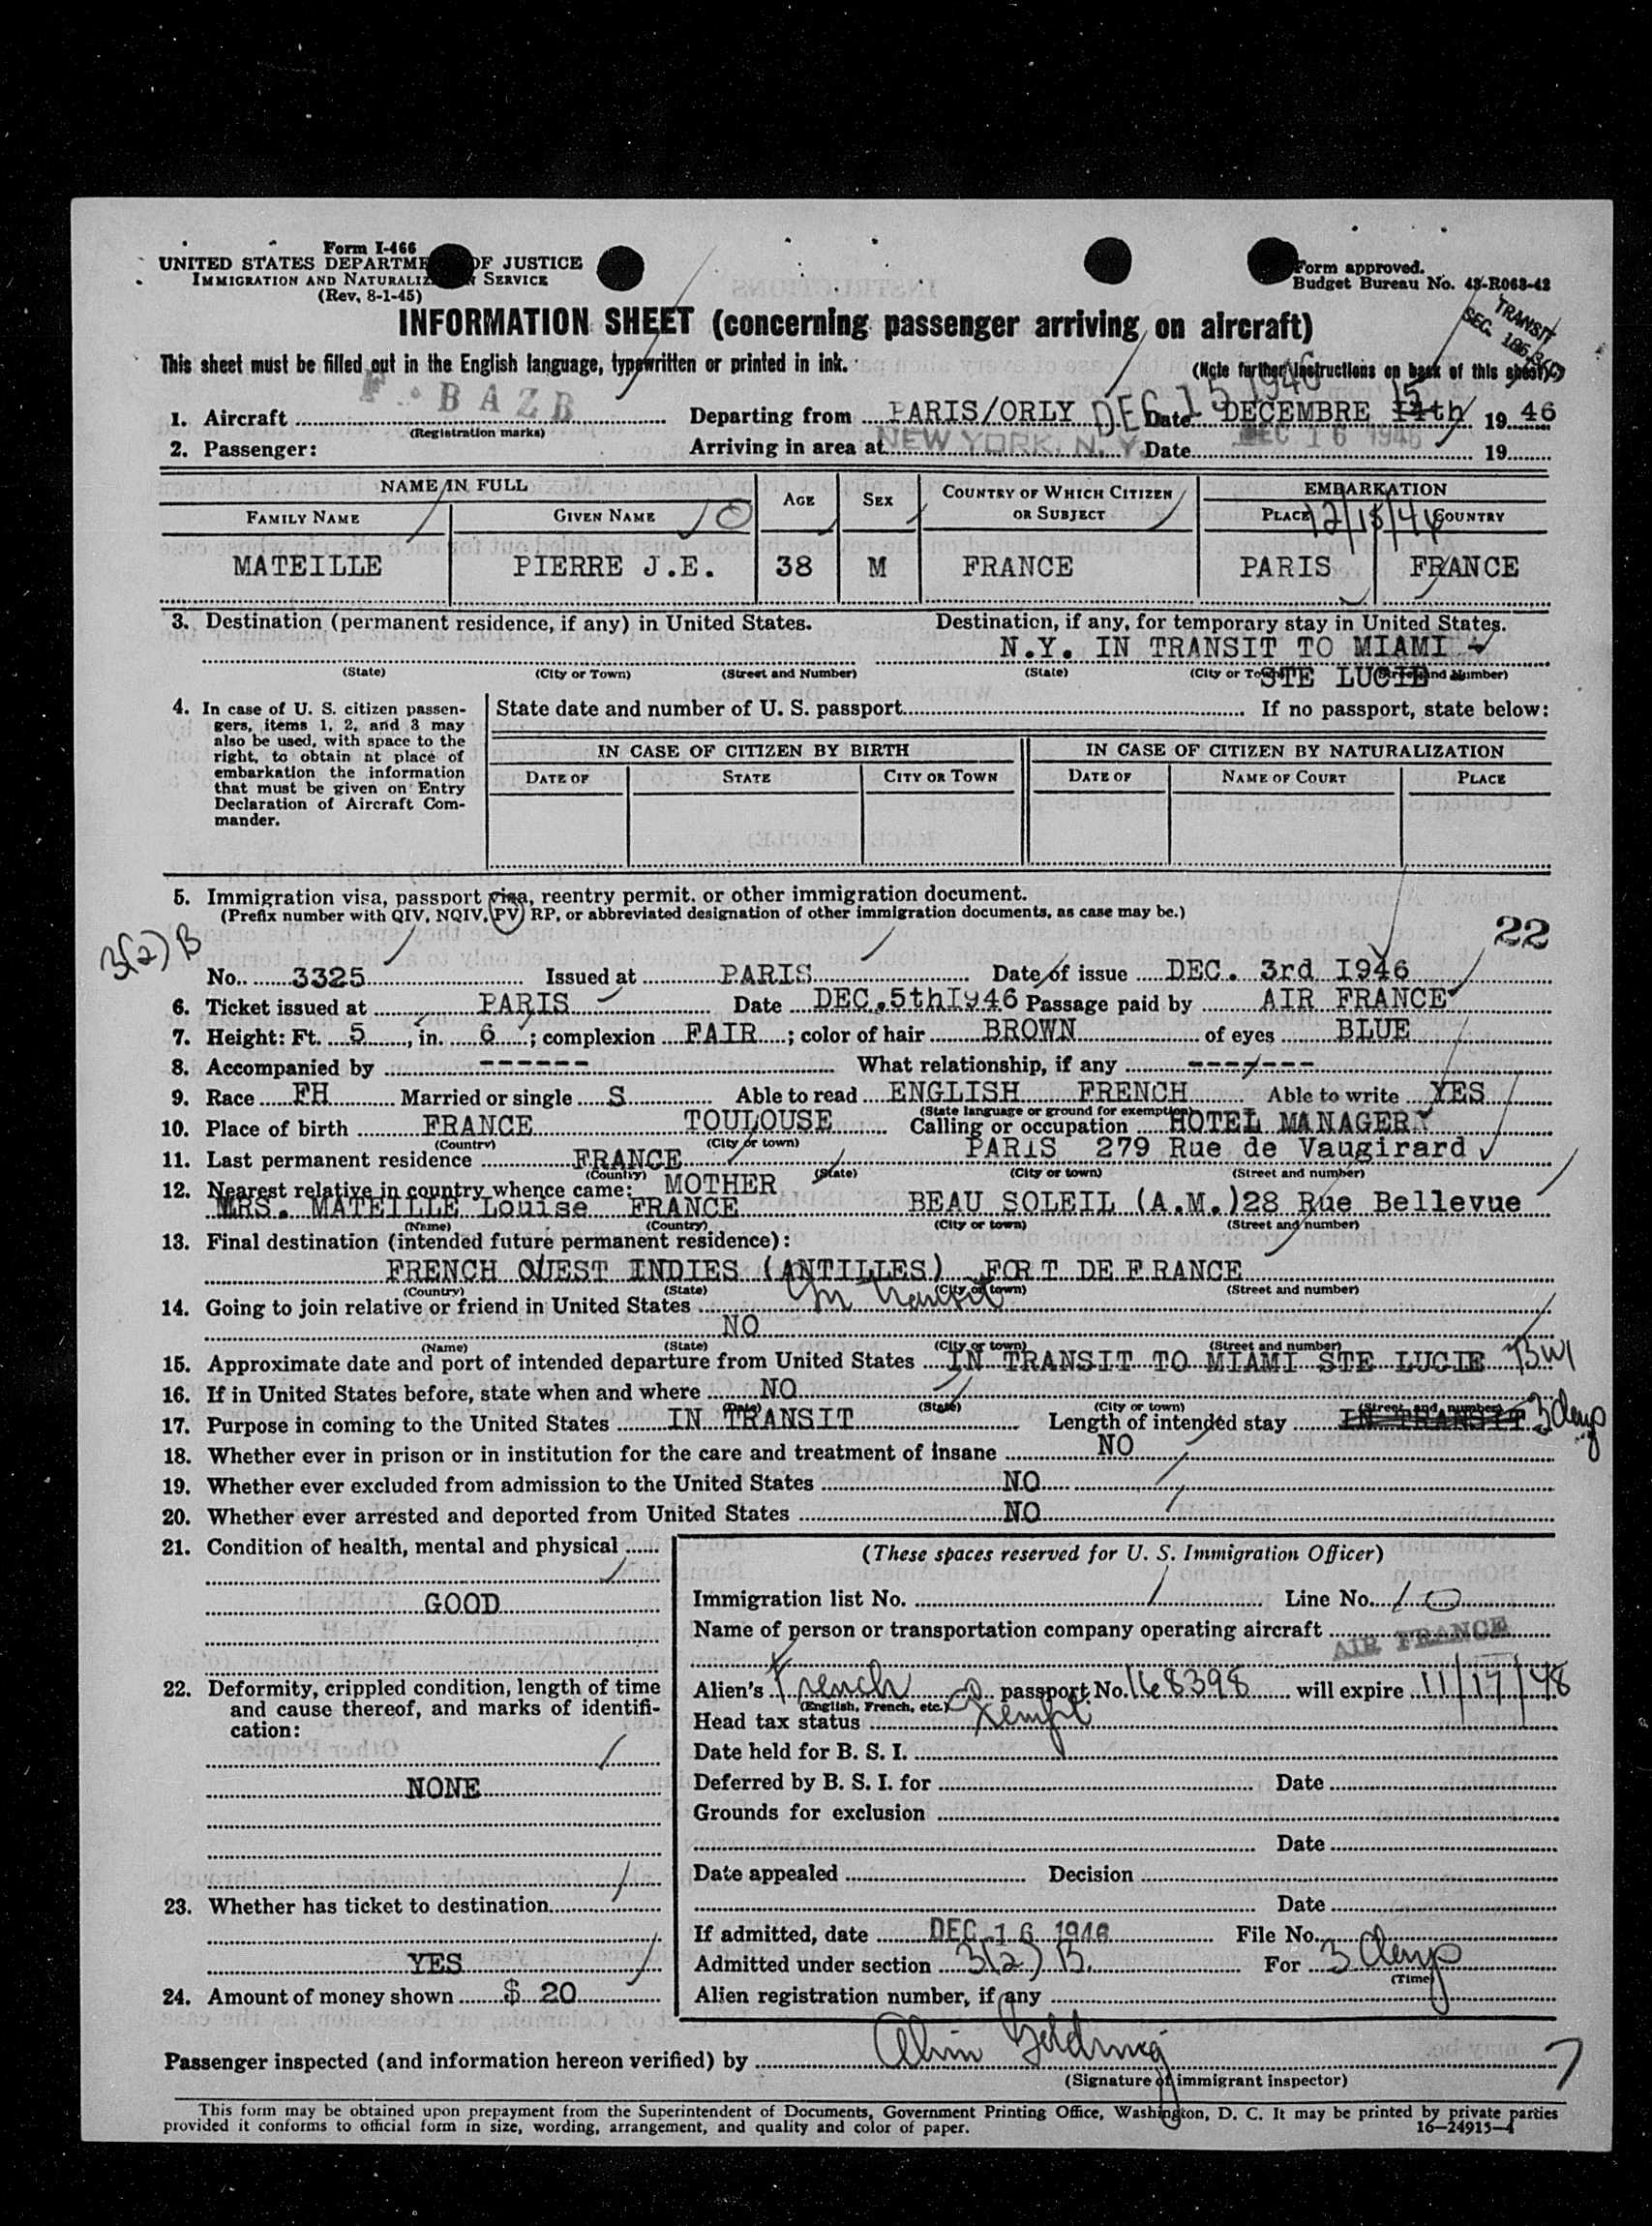 Form I-466
UNITED STATES DEPARTMENT OF JUSTICE
IMMIGRATION AND NATURALIZATION SERVICE
(Rev. 8-1-45)
Form approved.
Budget Bureau No. 43-R068-42
TRANSIT
SEC.
INFORMATION SHEET (concerning passenger arriving on aircraft)
This sheet must be filled out in the English language, typewritten or printed in ink. (Note further instructions on back of this sheet)
DEC 15 1946
1. Aircraft F. BAZB Departing from PARIS/ORLY Date DECEMBRE 14th 15 1946
(Registration marks)
2. Passenger: Arriving in area at NEW YORK, N. Y. Date DEC 16 1946 19
NAME IN FULL AGE SEX COUNTRY OF WHICH CITIZEN OR SUBJECT EMBARKATION
FAMILY NAME GIVEN NAME PLACE COUNTRY
12/15/46
MATEILLE PIERRE J.E. 38 M FRANCE PARIS FRANCE
3. Destination (permanent residence, if any) in United States. Destination, if any, for temporary stay in United States.
N.Y. IN TRANSIT TO MIAMI
(State) (City or Town) (Street and Number) (State) (City or Town) (Street and Number)
STE LUCIE
4. In case of U. S. citizen passengers, items 1, 2, and 3 may also be used, with space to the right, to obtain at place of embarkation the information that must be given on Entry Declaration of Aircraft Commander.
State date and number of U. S. passport If no passport, state below:
IN CASE OF CITIZEN BY BIRTH IN CASE OF CITIZEN BY NATURALIZATION
DATE OF STATE CITY OR TOWN DATE OF NAME OF COURT PLACE
5. Immigration visa, passport visa, reentry permit, or other immigration document.
(Prefix number with QIV, NQIV, PV, RP, or abbreviated designation of other immigration documents, as case may be.)
22
3(2) B
No. 3325 Issued at PARIS Date of issue DEC. 3rd I946
6. Ticket issued at PARIS Date DEC.5thI946 Passage paid by AIR FRANCE
7. Height: Ft. 5, in. 6; complexion FAIR; color of hair BROWN of eyes BLUE
8. Accompanied by ------ What relationship, if any -------
9. Race FH Married or single S Able to read ENGLISH FRENCH Able to write YES
(State language or ground for exemption)
10. Place of birth FRANCE TOULOUSE Calling or occupation HOTEL MANAGER
(Country) (City or town)
11. Last permanent residence FRANCE PARIS 279 Rue de Vaugirard
(Country) (State) (City or town) (Street and number)
12. Nearest relative in country whence came: MOTHER
MRS. MATEILLE Louise FRANCE BEAU SOLEIL (A.M.)28 Rue Bellevue
(Name) (Country) (City or town) (Street and number)
13. Final destination (intended future permanent residence):
FRENCH OUEST INDIES (ANTILLES) FORT DE FRANCE
(Country) (State) (City or town) (Street and number)
14. Going to join relative or friend in United States In transit
NO
(Name) (State) (City or town) (Street and number)
15. Approximate date and port of intended departure from United States IN TRANSIT TO MIAMI STE LUCIE BWI
16. If in United States before, state when and where NO
(Date) (State) (City or town) (Street and number)
17. Purpose in coming to the United States IN TRANSIT Length of intended stay IN TRANSIT 3 days
18. Whether ever in prison or in institution for the care and treatment of insane NO
19. Whether ever excluded from admission to the United States NO
20. Whether ever arrested and deported from United States NO
21. Condition of health, mental and physical
GOOD
22. Deformity, crippled condition, length of time and cause thereof, and marks of identification:
NONE
23. Whether has ticket to destination
YES
24. Amount of money shown $ 20
(These spaces reserved for U. S. Immigration Officer)
Immigration list No. 1 Line No. 10
Name of person or transportation company operating aircraft
AIR FRANCE
Alien's French passport No. 168398 will expire 11/17/48
(English, French, etc.)
Head tax status Exempt
Date held for B. S. I.
Deferred by B. S. I. for Date
Grounds for exclusion
Date
Date appealed Decision
Date
If admitted, date DEC 16 1946 File No.
Admitted under section 3(2) B. For 3 days
(Time)
Alien registration number, if any
Passenger inspected (and information hereon verified) by
(Signature of immigrant inspector)
7
This form may be obtained upon prepayment from the Superintendent of Documents, Government Printing Office, Washington, D. C. It may be printed by private parties
provided it conforms to official form in size, wording, arrangement, and quality and color of paper. 16—24915-4